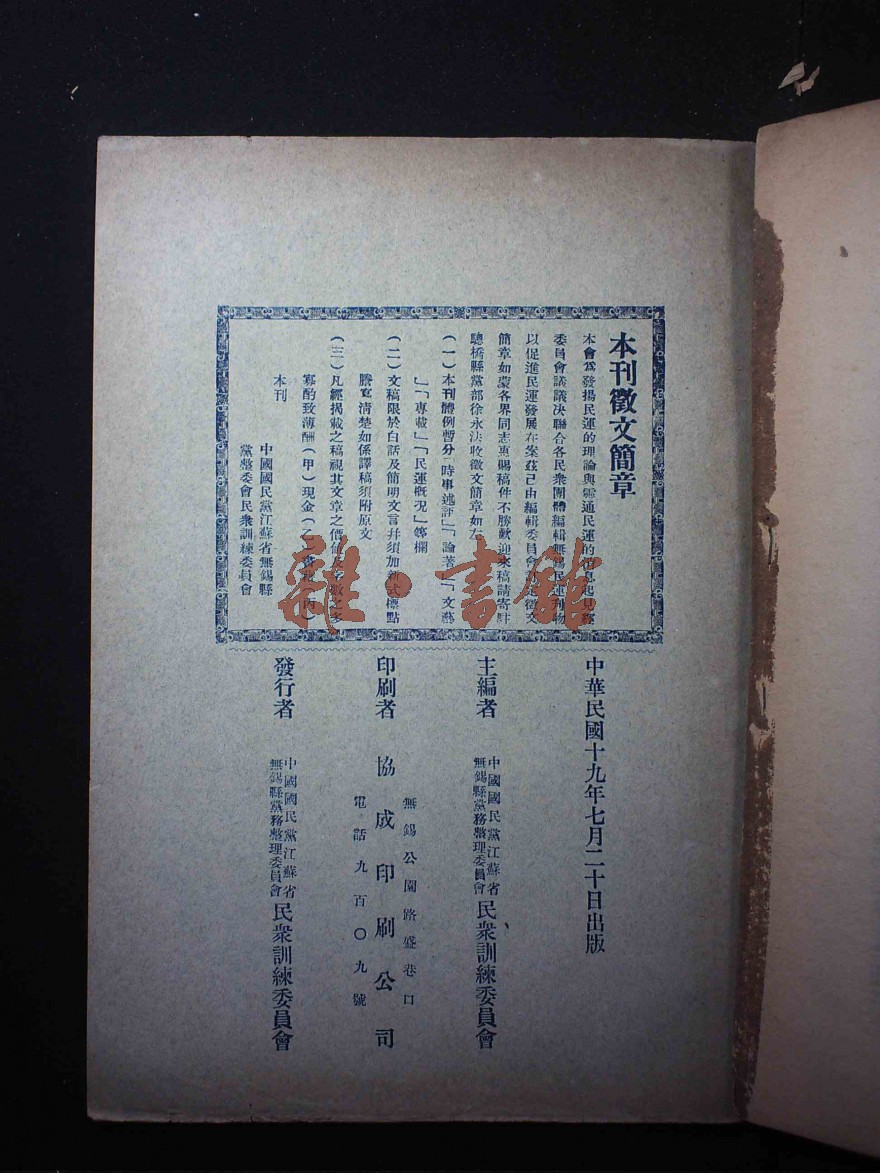 本刊徵文簡章
本會爲發揚民運的理論與靈通民運的消息起見經
委員會議議决聯合各民衆團體編輯無錫民運刊物
以促進民運發展在案茲已由編輯委員會 徵文
簡章如蒙各界同志惠賜稿件不勝歡迎來稿請寄
驄橋縣黨部徐永 收徵文簡章如左
(一)本刊體例暫分「時事述評」「論著」「文藝
」「專載」「民運概况」等欄
(二)文稿限於白話及簡明文言幷須加新式標點
謄寫清楚如係譯稿須附原文
(三)凡經揭載之稿視其文章之價値及字數之多
寡酌致薄酬(甲)現金(乙)書 (丙)
本刊
中國國民黨江蘇省無錫縣
黨整委會民衆訓練委員會
中華民國十九年七月二十日出版
主編者 中國國民黨江蘇省無錫縣黨務整理委員會 民衆訓練委員會
印刷者 協成印刷公司
無錫公園路盛巷口
電話九百〇九號
發行者 中國國民黨江蘇省無錫縣黨務整理委員會 民衆訓練委員會
雜·書館